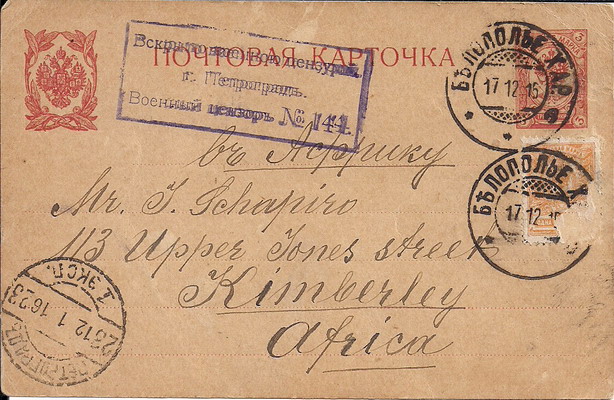 ПОЧТОВАЯ КАРТОЧКА
Вскрыто военною цензурою
г. Петроградъ.
Военный цензоръ № 144.
БѢЛОПОЛЬЕ ХАР.
17 12 15
въ Африку
Mr. I. Schapiro
БѢЛОПОЛЬЕ Х
17 12 15
113 Upper Jones street
Kimberley
Africa
ПЕТРОГРАДЪ
1 ЭКСП.